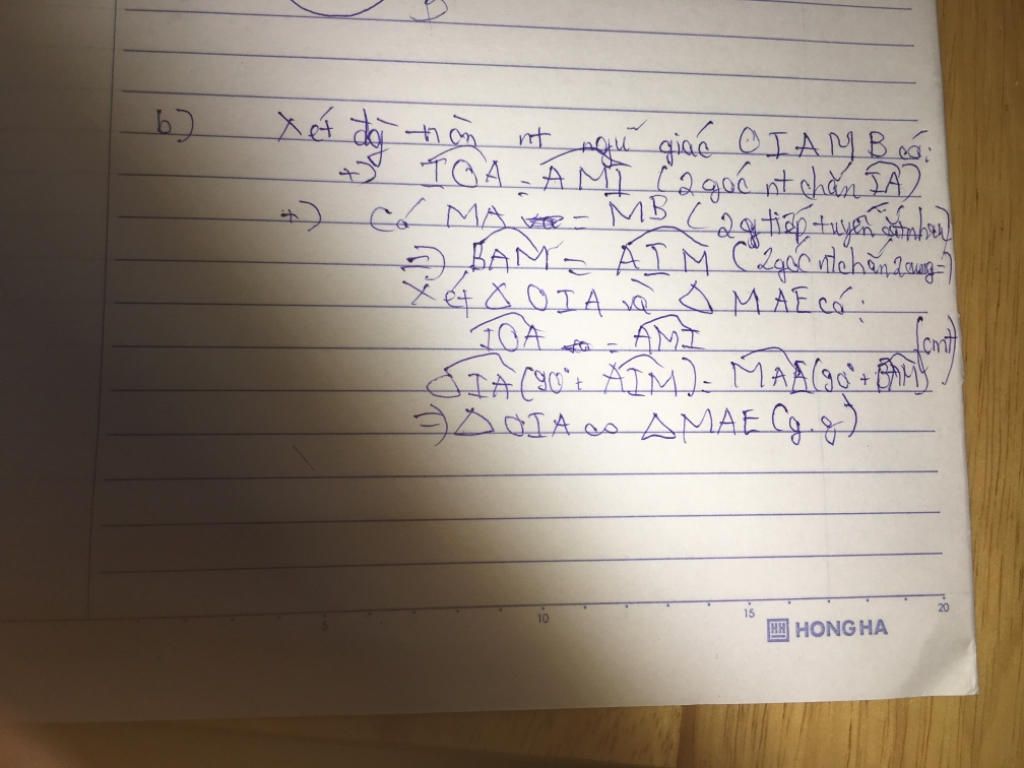 b) Xét đg tròn nt ngũ giác OIAMB có:
+) IOA = AMI (2 góc nt chắn IA)
+) Có MA = MB (2 đg tiếp tuyến nhau)
=> BAM = AIM (2 góc nt chắn 2 cung =)
Xét Δ OIA và Δ MAE có:
IOA = AMI (cmt)
OIA (90° + AIM) = MAE (90° + BAM)
=> Δ OIA ∽ Δ MAE (g.g)
5 10 15 20
HONG HA